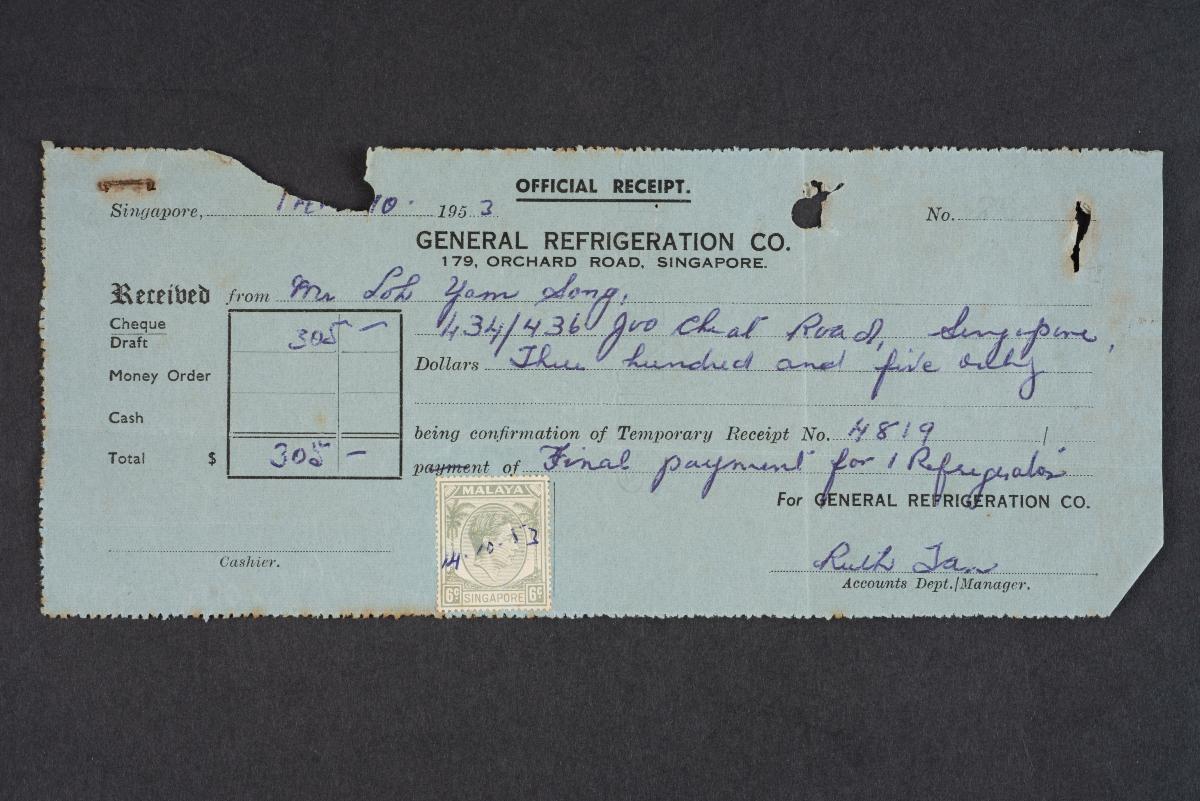 OFFICIAL RECEIPT.
Singapore, 10. 1953
No.
GENERAL REFRIGERATION CO.
179, ORCHARD ROAD, SINGAPORE.
Received from Mr Loh Yam Song,
434/436 Joo Chiat Road, Singapore,
Dollars Three hundred and five only
Cheque
Draft 305 —
Money Order
Cash
Total $ 305 —
being confirmation of Temporary Receipt No. 4819 /
payment of Final payment for 1 Refrigerator
For GENERAL REFRIGERATION CO.
MALAYA
14.10.53
6c SINGAPORE 6c
Cashier.
Ruth Tan
Accounts Dept./Manager.